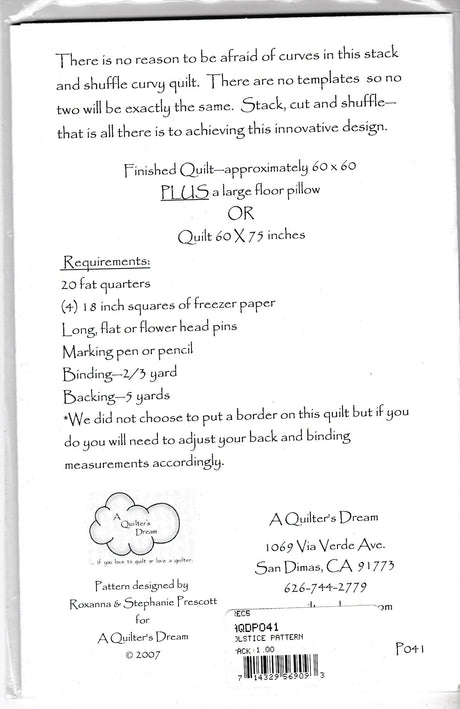 There is no reason to be afraid of curves in this stack
and shuffle curvy quilt. There are no templates so no
two will be exactly the same. Stack, cut and shuffle—
that is all there is to achieving this innovative design.
Finished Quilt—approximately 60 x 60
PLUS a large floor pillow
OR
Quilt 60 X 75 inches
Requirements:
20 fat quarters
(4) 18 inch squares of freezer paper
Long, flat or flower head pins
Marking pen or pencil
Binding—2/3 yard
Backing—5 yards
*We did not choose to put a border on this quilt but if you
do you will need to adjust your back and binding
measurements accordingly.
A
Quilter's
Dream
... if you love to quilt or love a quilter.
Pattern designed by
Roxanna & Stephanie Prescott
for
A Quilter's Dream
© 2007
A Quilter's Dream
1069 Via Verde Ave.
San Dimas, CA 91773
626-744-2779
om
EC5
QDP041
OLSTICE PATTERN
ACK 1.00
7 14329 56909 3
P041